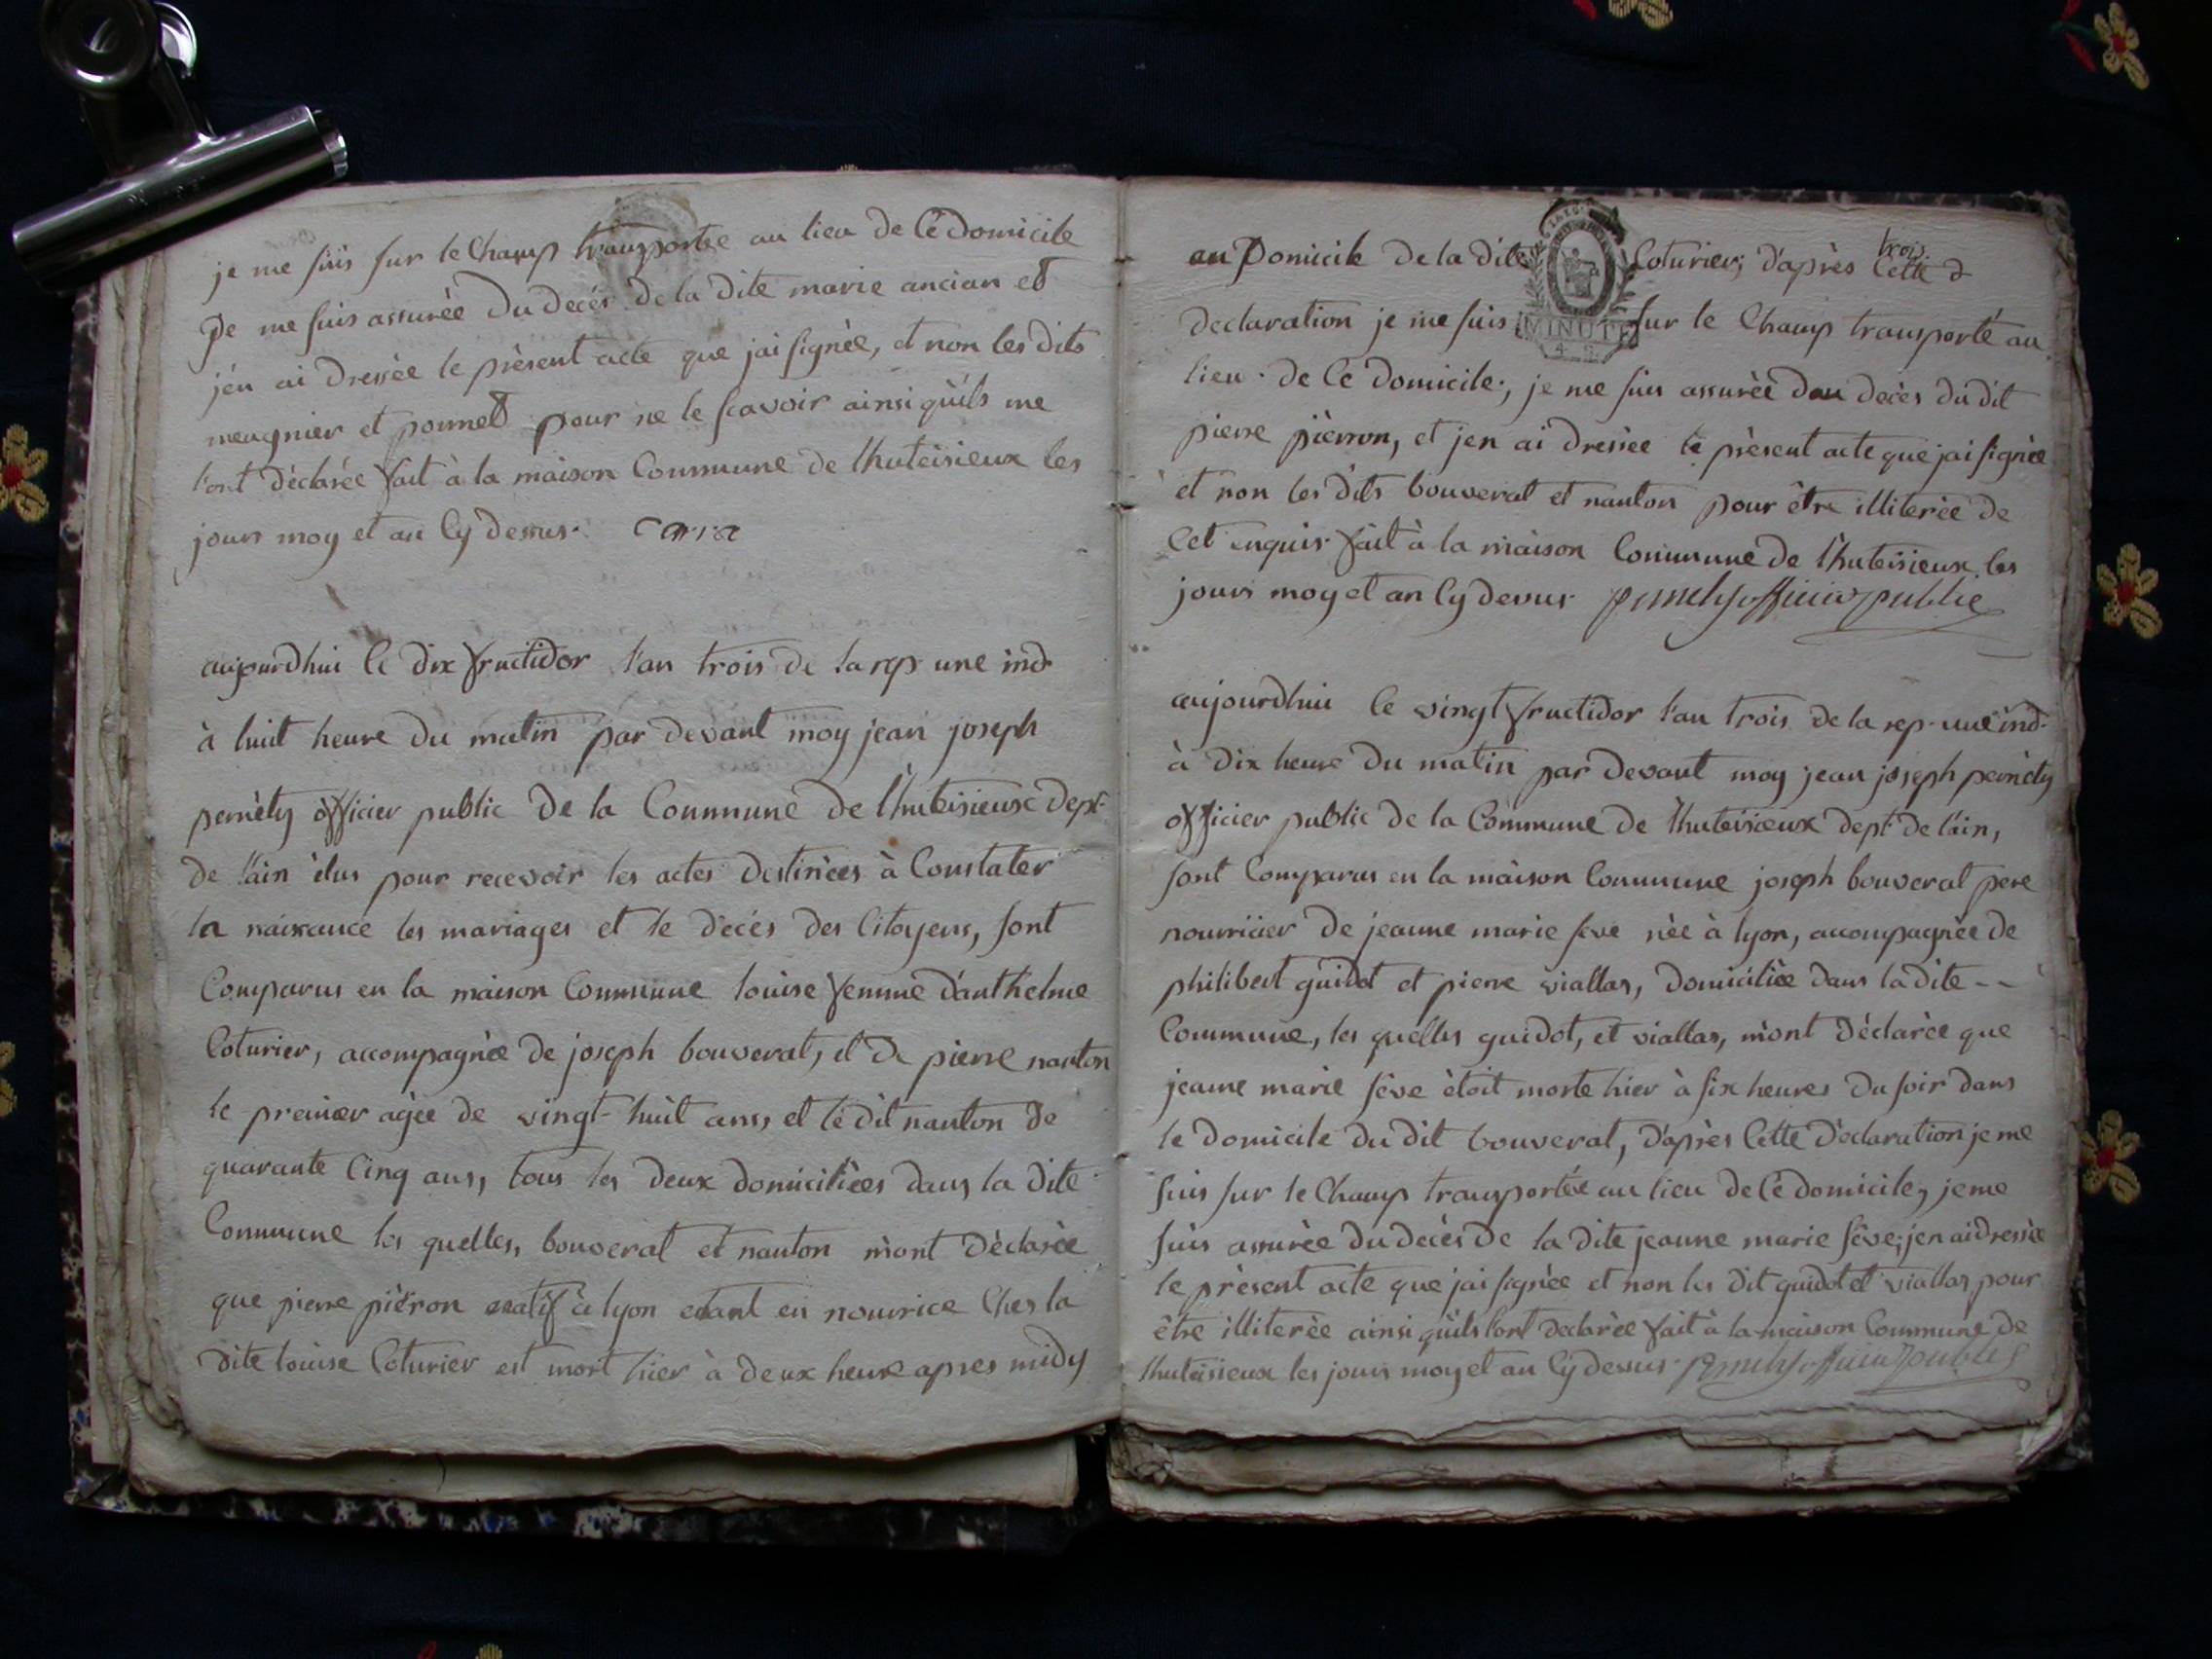 je me suis sur le Champ transportée au lieu de Ce domicile
je me suis assurée du decés de la dite marie ancian et
j'en ai dressée le présent acte que jai signée, et non les dits
meugnier et ponnet pour ne le scavoir ainsi quils me
l'ont déclarée fait à la maison Commune de lhuteisieux les
jours moy et an Cy dessus.
aujourdhui le dix fructidor l'an trois de la rep. une ind.
à huit heure du matin par devant moy jean joseph
pernèty officier public de la Commune de l'huteisieux dept.
de l'ain élus pour recevoir les actes destinées à Constater
la naissance les mariages et le décés des Citoyens, sont
Comparus en la maison Commune louise femme d'anthelme
Coturier, accompagnée de joseph bouverat, et de pierre nanton
le premier agée de vingt-huit ans, et le dit nanton de
quarante Cinq ans, tous les deux domiciliées dans la dite
Commune les quelles, bouverat et nanton m'ont déclarée
que pierre piéron natif à lyon etant en nourrice Ches la
dite louise Coturier est mort hier à deux heure apres midy
au Domicile de la dite Coturier; d'après Cette d
trois
declaration je me suis sur le Champ transporté au
MINUTE
lieu de Ce domicile, je me suis assurée du decès du dit
pierre pierron, et jen ai dressée le présent acte que jai signée
et non les dits bouverat et nanton pour être illiterée de
Cet enquis fait à la maison Commune de l'huteisieux les
jours moy et an Cy dessus pernety officier public
aujourdhui le vingt fructidor l'an trois de la rep. une ind.
à dix heure du matin par devant moy jean joseph pernèty
officier public de la Commune de lhuteisieux dept. de l'ain,
sont Comparus en la maison Commune joseph bouverat pere
nourricier de jeanne marie seve née à lyon, accompagnée de
philibert guidot et pierre viallas, domiciliée dans la dite --
Commune, les quelles guidot, et viallas, m'ont déclarée que
jeanne marie séve étoit morte hier à six heures du soir dans
le domicile du dit bouverat, d'après Cette déclaration je me
suis sur le Champ transportée au lieu de Ce domicile, je me
suis assurée du decés de la dite jeanne marie séve; jen ai dressée
le présent acte que jai signée et non les dit guidot et viallas pour
être illiterée ainsi quils l'ont declarée fait à la maison Commune de
lhuteisieux les jours moy et an Cy dessus pernety officier public